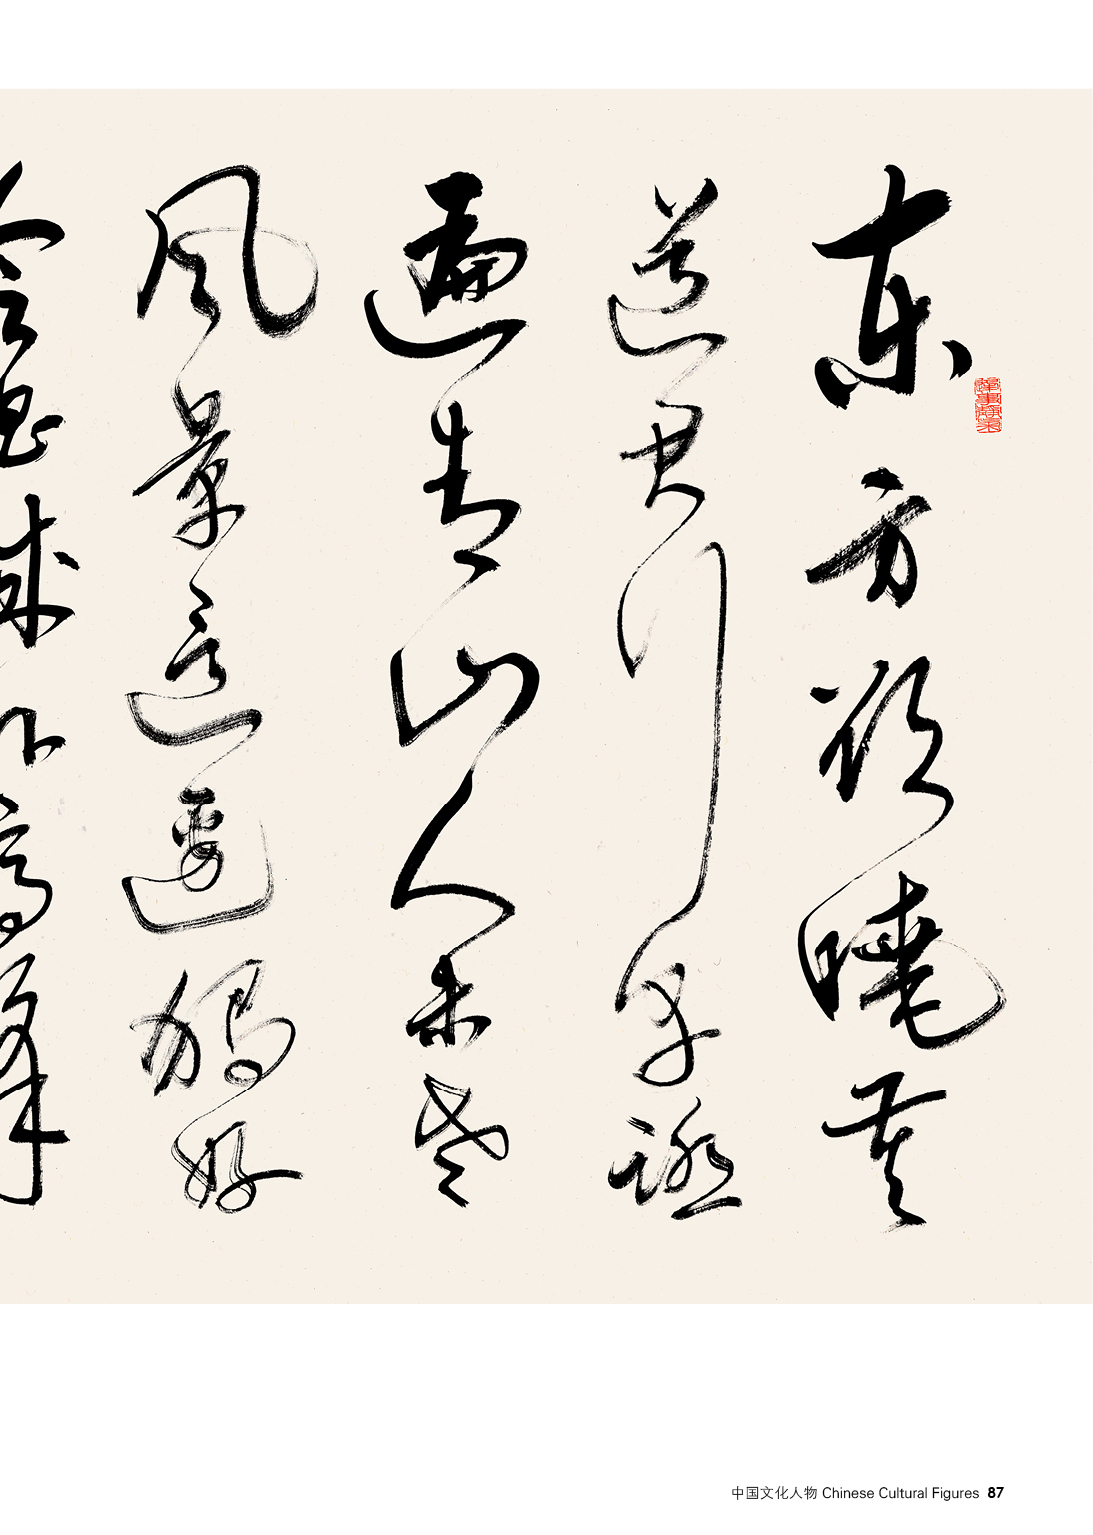 東方欲曉莫
道君行早踏
遍青山人未老
风景這邊獨好
會昌城外高峰
中国文化人物 Chinese Cultural Figures 87